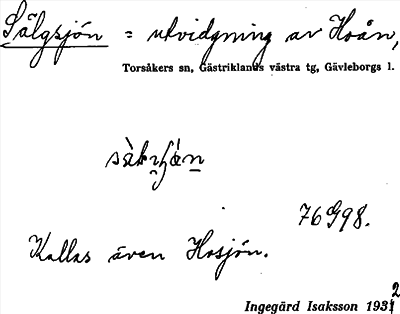 Sälgsjön = utvidgning av Hoån,
Torsåkers sn, Gästriklands västra tg, Gävleborgs l.
76G98.
Kallas även Hosjön.
Ingegärd Isaksson 1932